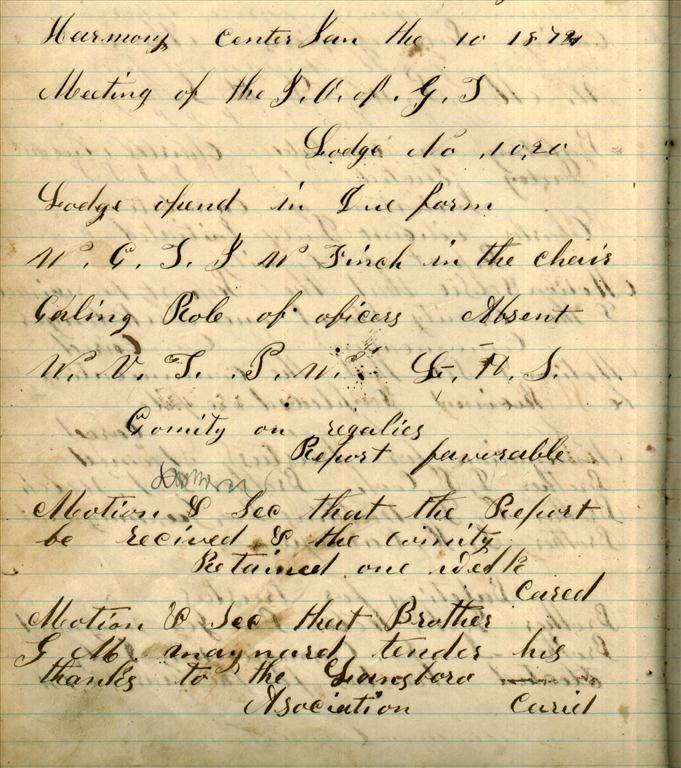 Harmony Center Jan the 10 1874
Meeting of the I. O. of. G. T
Lodge No 10,20
Lodge opend in Due form
W. C. T. J W Finch in the chair
Caling Role of oficers Absent
W. V. T. P. W. L. H. S.
Comity on regalies
Report favorable
Motion & Sec that the Report
be recived & the comity
Retained one week
Cared
Motion & Sec that Brother
G M maynard tender his
thanks to the Lansboro
Asociation Caried